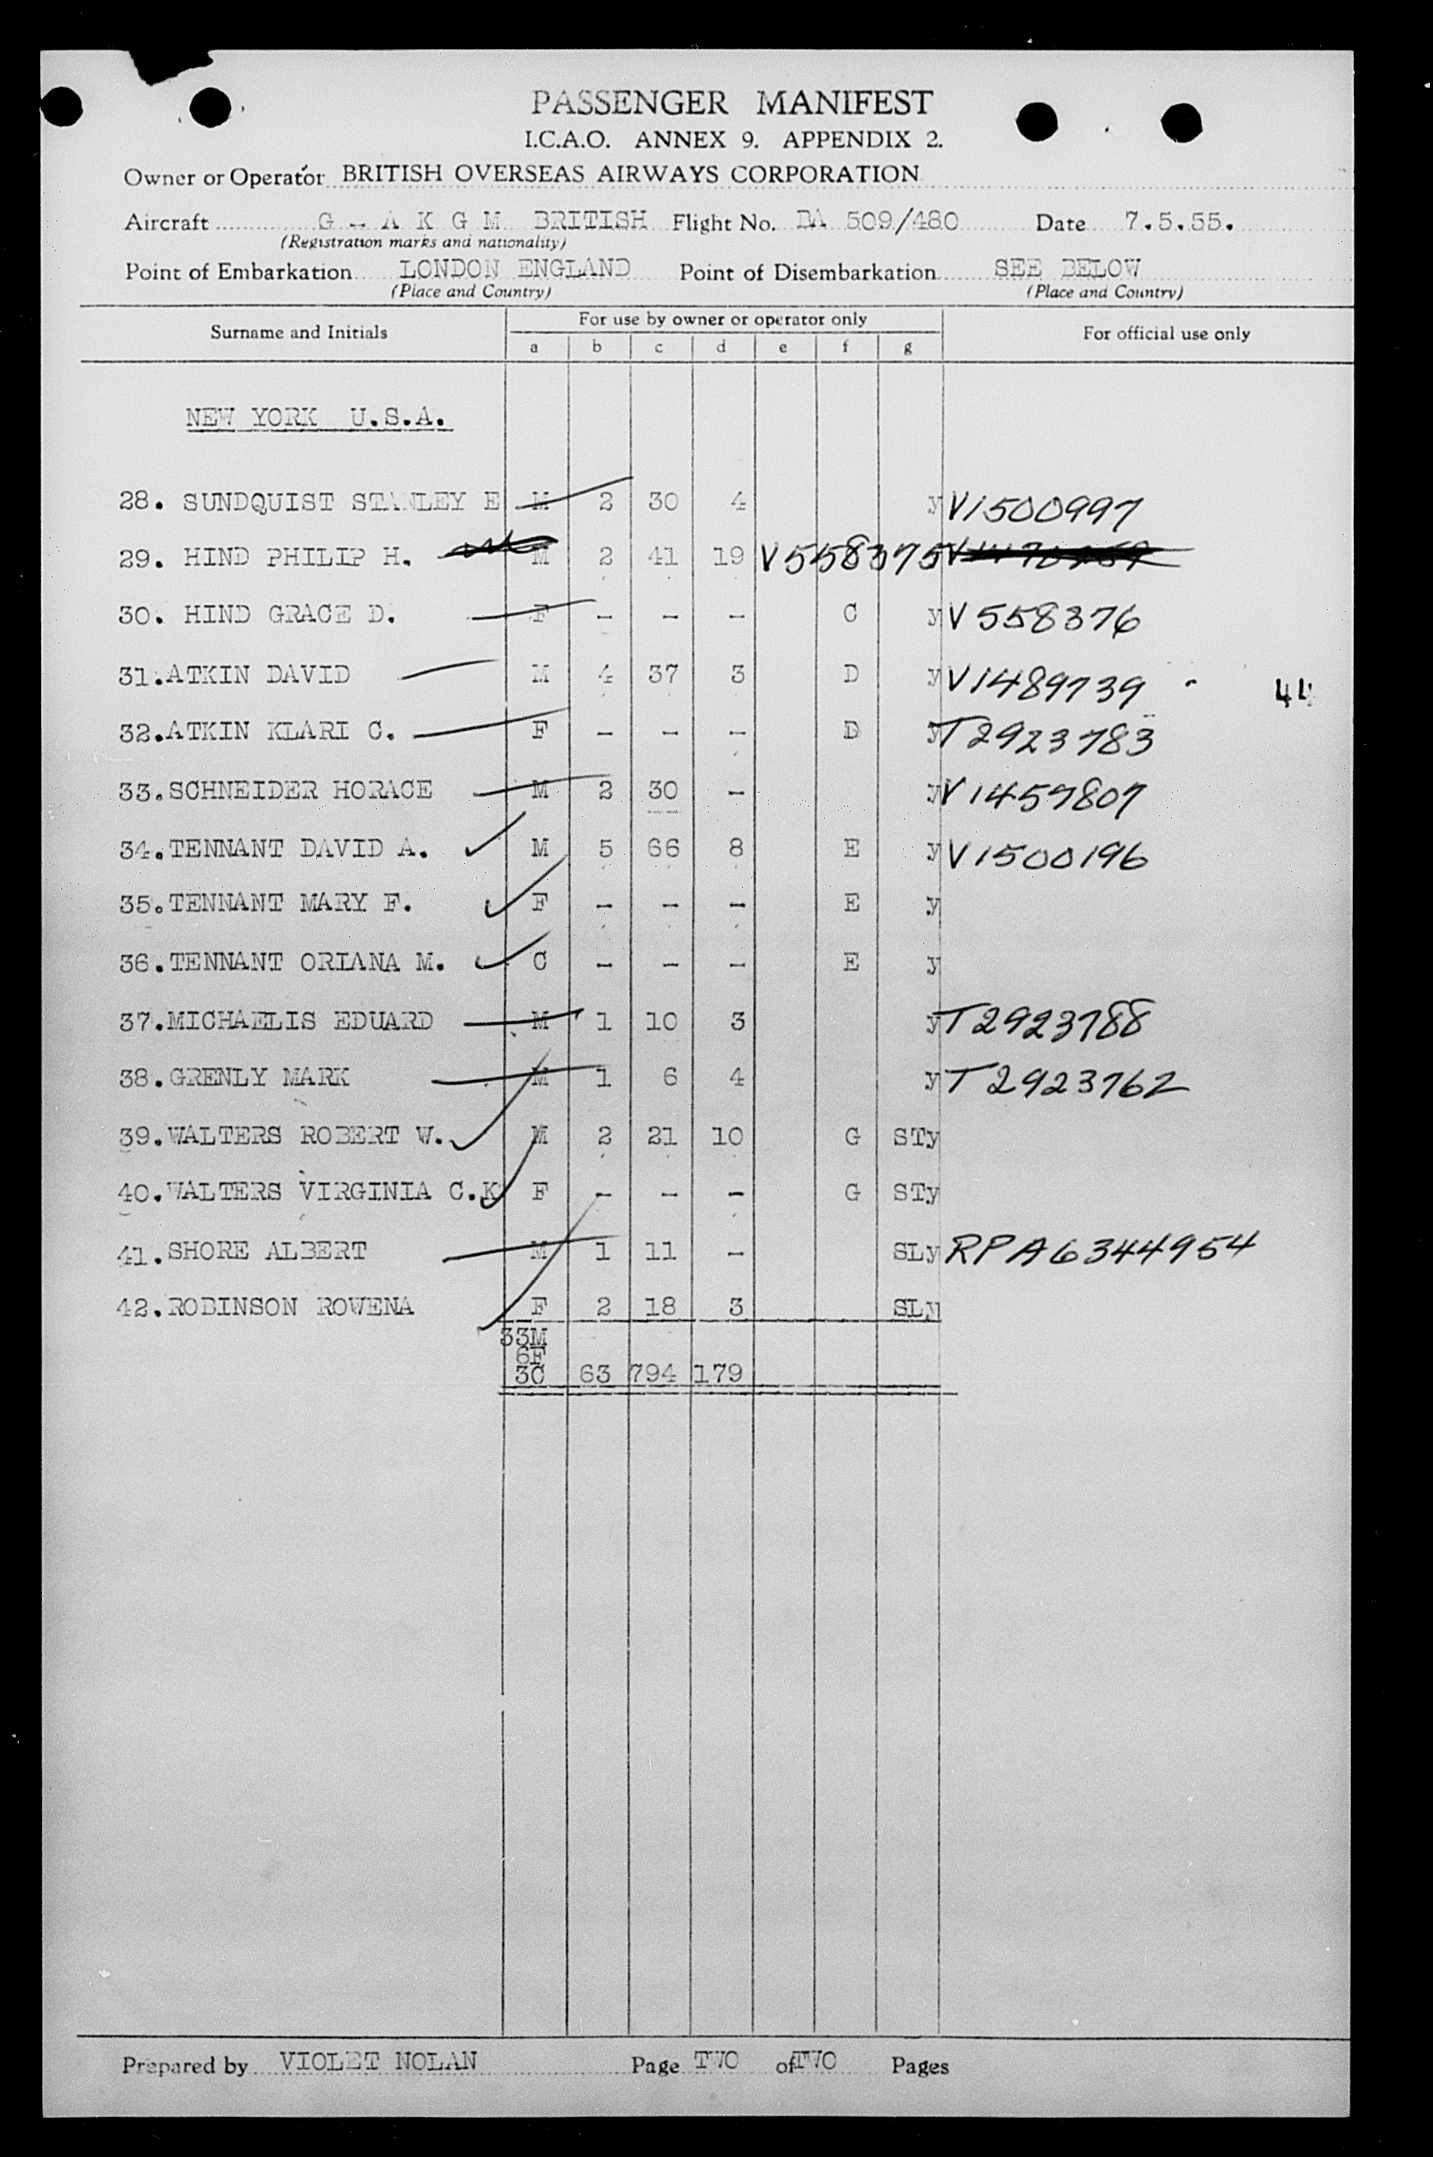 PASSENGER MANIFEST
I.C.A.O. ANNEX 9. APPENDIX 2.
Owner or Operator BRITISH OVERSEAS AIRWAYS CORPORATION
Aircraft G - A K G M BRITISH Flight No. BA 509/480 Date 7.5.55.
(Registration marks and nationality)
Point of Embarkation LONDON ENGLAND Point of Disembarkation SEE BELOW
(Place and Country) (Place and Country)
Surname and Initials For use by owner or operator only For official use only
a b c d e f g
NEW YORK U.S.A.
28. SUNDQUIST STANLEY E M 2 30 4 y V1500997
29. HIND PHILIP H. M 2 41 19 V558375
30. HIND GRACE D. F - - - C y V558376
31. ATKIN DAVID M 4 37 3 D y V1489739 44
32. ATKIN KLARI C. F - - - D y T2923783
33. SCHNEIDER HORACE M 2 30 - y V1457807
34. TENNANT DAVID A. M 5 66 8 E y V1500196
35. TENNANT MARY F. F - - - E y
36. TENNANT ORIANA M. C - - - E y
37. MICHAELIS EDUARD M 1 10 3 y T2923788
38. GRENLY MARK M 1 6 4 y T2923762
39. WALTERS ROBERT W. M 2 21 10 G STy
40. WALTERS VIRGINIA C.K F - - - G STy
41. SHORE ALBERT M 1 11 - SLy RPA6344954
42. ROBINSON ROWENA F 2 18 3 SLy
33M
6F
3C 63 794 179
Prepared by VIOLET NOLAN Page TWO of TWO Pages